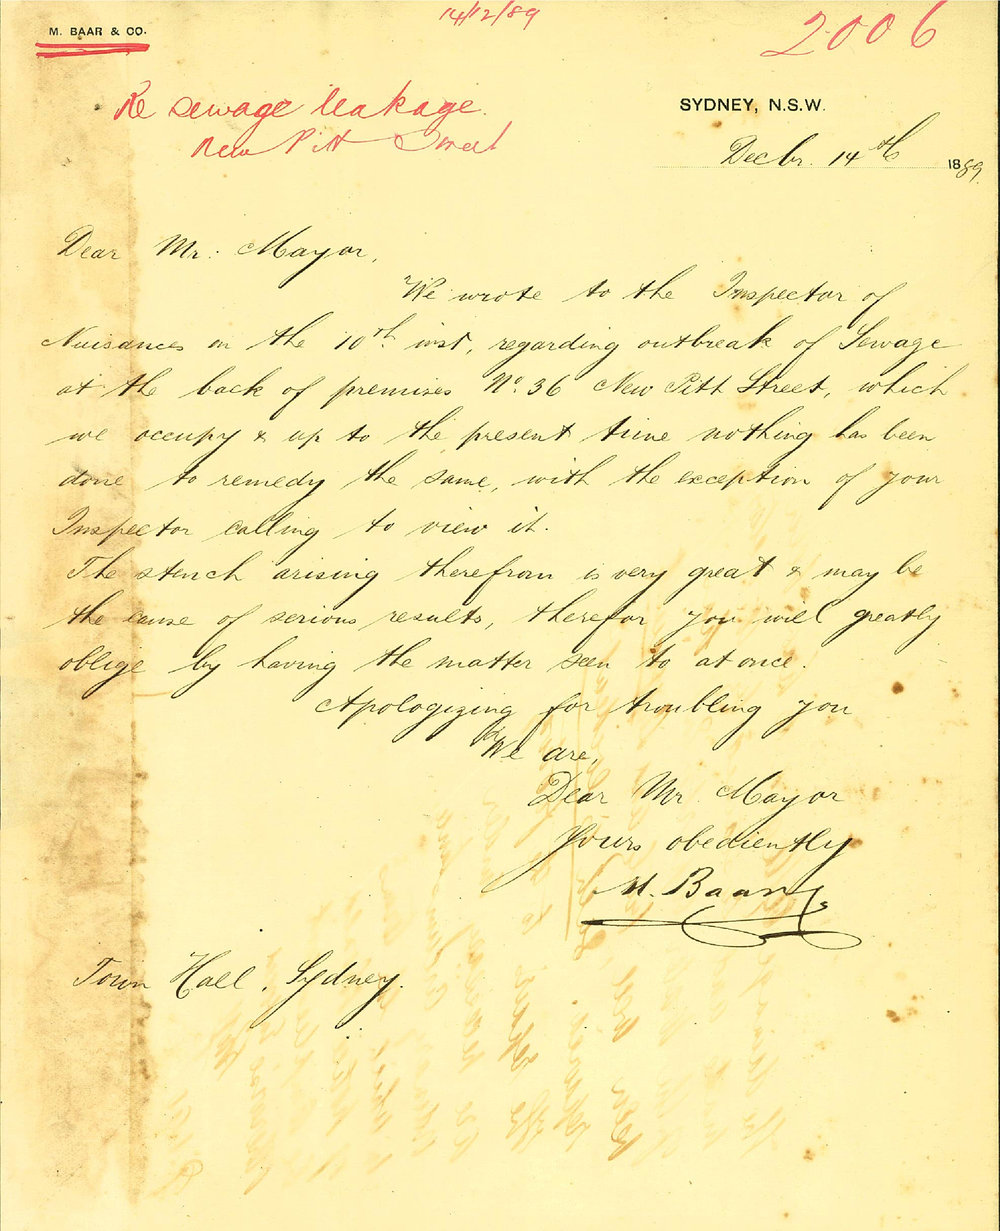 14/12/89
M. BAAR & CO.
2006
Re sewage leakage.
New Pitt Street
SYDNEY, N.S.W.
Decbr. 14th 1889.
Dear Mr. Mayor,
We wrote to the Inspector of
Nuisances on the 10th inst, regarding outbreak of Sewage
at the back of premises No. 36 New Pitt Street, which
we occupy & up to the present time nothing has been
done to remedy the same, with the exception of your
Inspector calling to view it.
The stench arising therefrom is very great & may be
the cause of serious results, therefor you will greatly
oblige by having the matter seen to at once.
Apologizing for troubling you
We are,
Dear Mr Mayor
Yours obediently
M. Baar
Town Hall, Sydney.